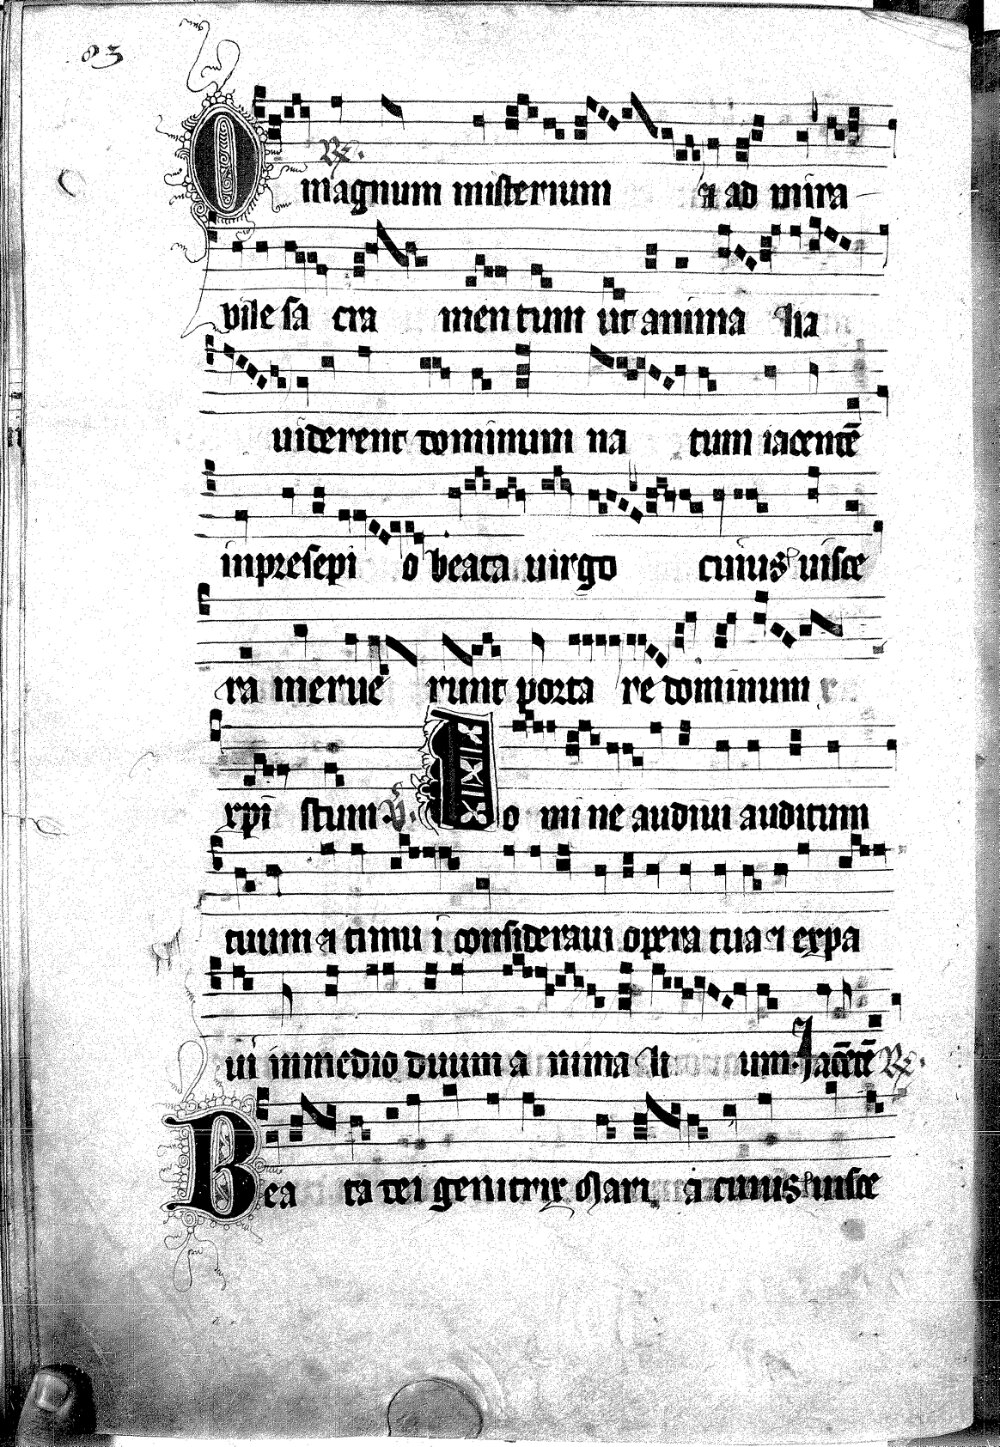 83
℟.
O magnum misterium ⁊ ad mira
vile sa cra men tum ut anima lia
viderent dominum na tum iacentē
in presepi o beata virgo cuius visce
ra merue runt porta re dominum
xpi stum ℣. Domine audivi auditum
tuum ⁊ timui consideravi opera tua ⁊ expa
vi in medio duum a nima li um. Iacētē ℟.
Bea ta dei genitrix Mari a cuius visce